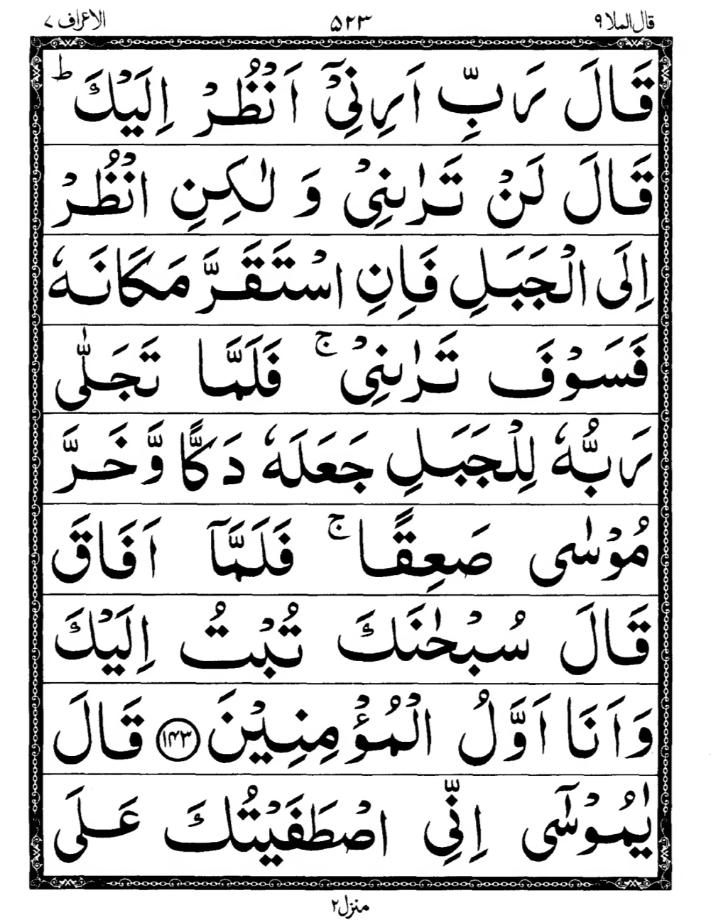 قال الملا ۹ ۵۲۳ الاعراف ۷
قَالَ رَبِّ اَرِنِیْۤ اَنْظُرْ اِلَیْكَ ؕ
قَالَ لَنْ تَرٰىنِیْ وَ لٰكِنِ انْظُرْ
اِلَی الْجَبَلِ فَاِنِ اسْتَقَرَّ مَكَانَهٗ
فَسَوْفَ تَرٰىنِیْ ۚ فَلَمَّا تَجَلّٰی
رَبُّهٗ لِلْجَبَلِ جَعَلَهٗ دَكًّا وَّ خَرَّ
مُوْسٰی صَعِقًا ۚ فَلَمَّاۤ اَفَاقَ
قَالَ سُبْحٰنَكَ تُبْتُ اِلَیْكَ
وَ اَنَا اَوَّلُ الْمُؤْمِنِیْنَ ﴿۱۴۳﴾ قَالَ
یٰمُوْسٰۤی اِنِّی اصْطَفَیْتُكَ عَلَی
منزل ۲